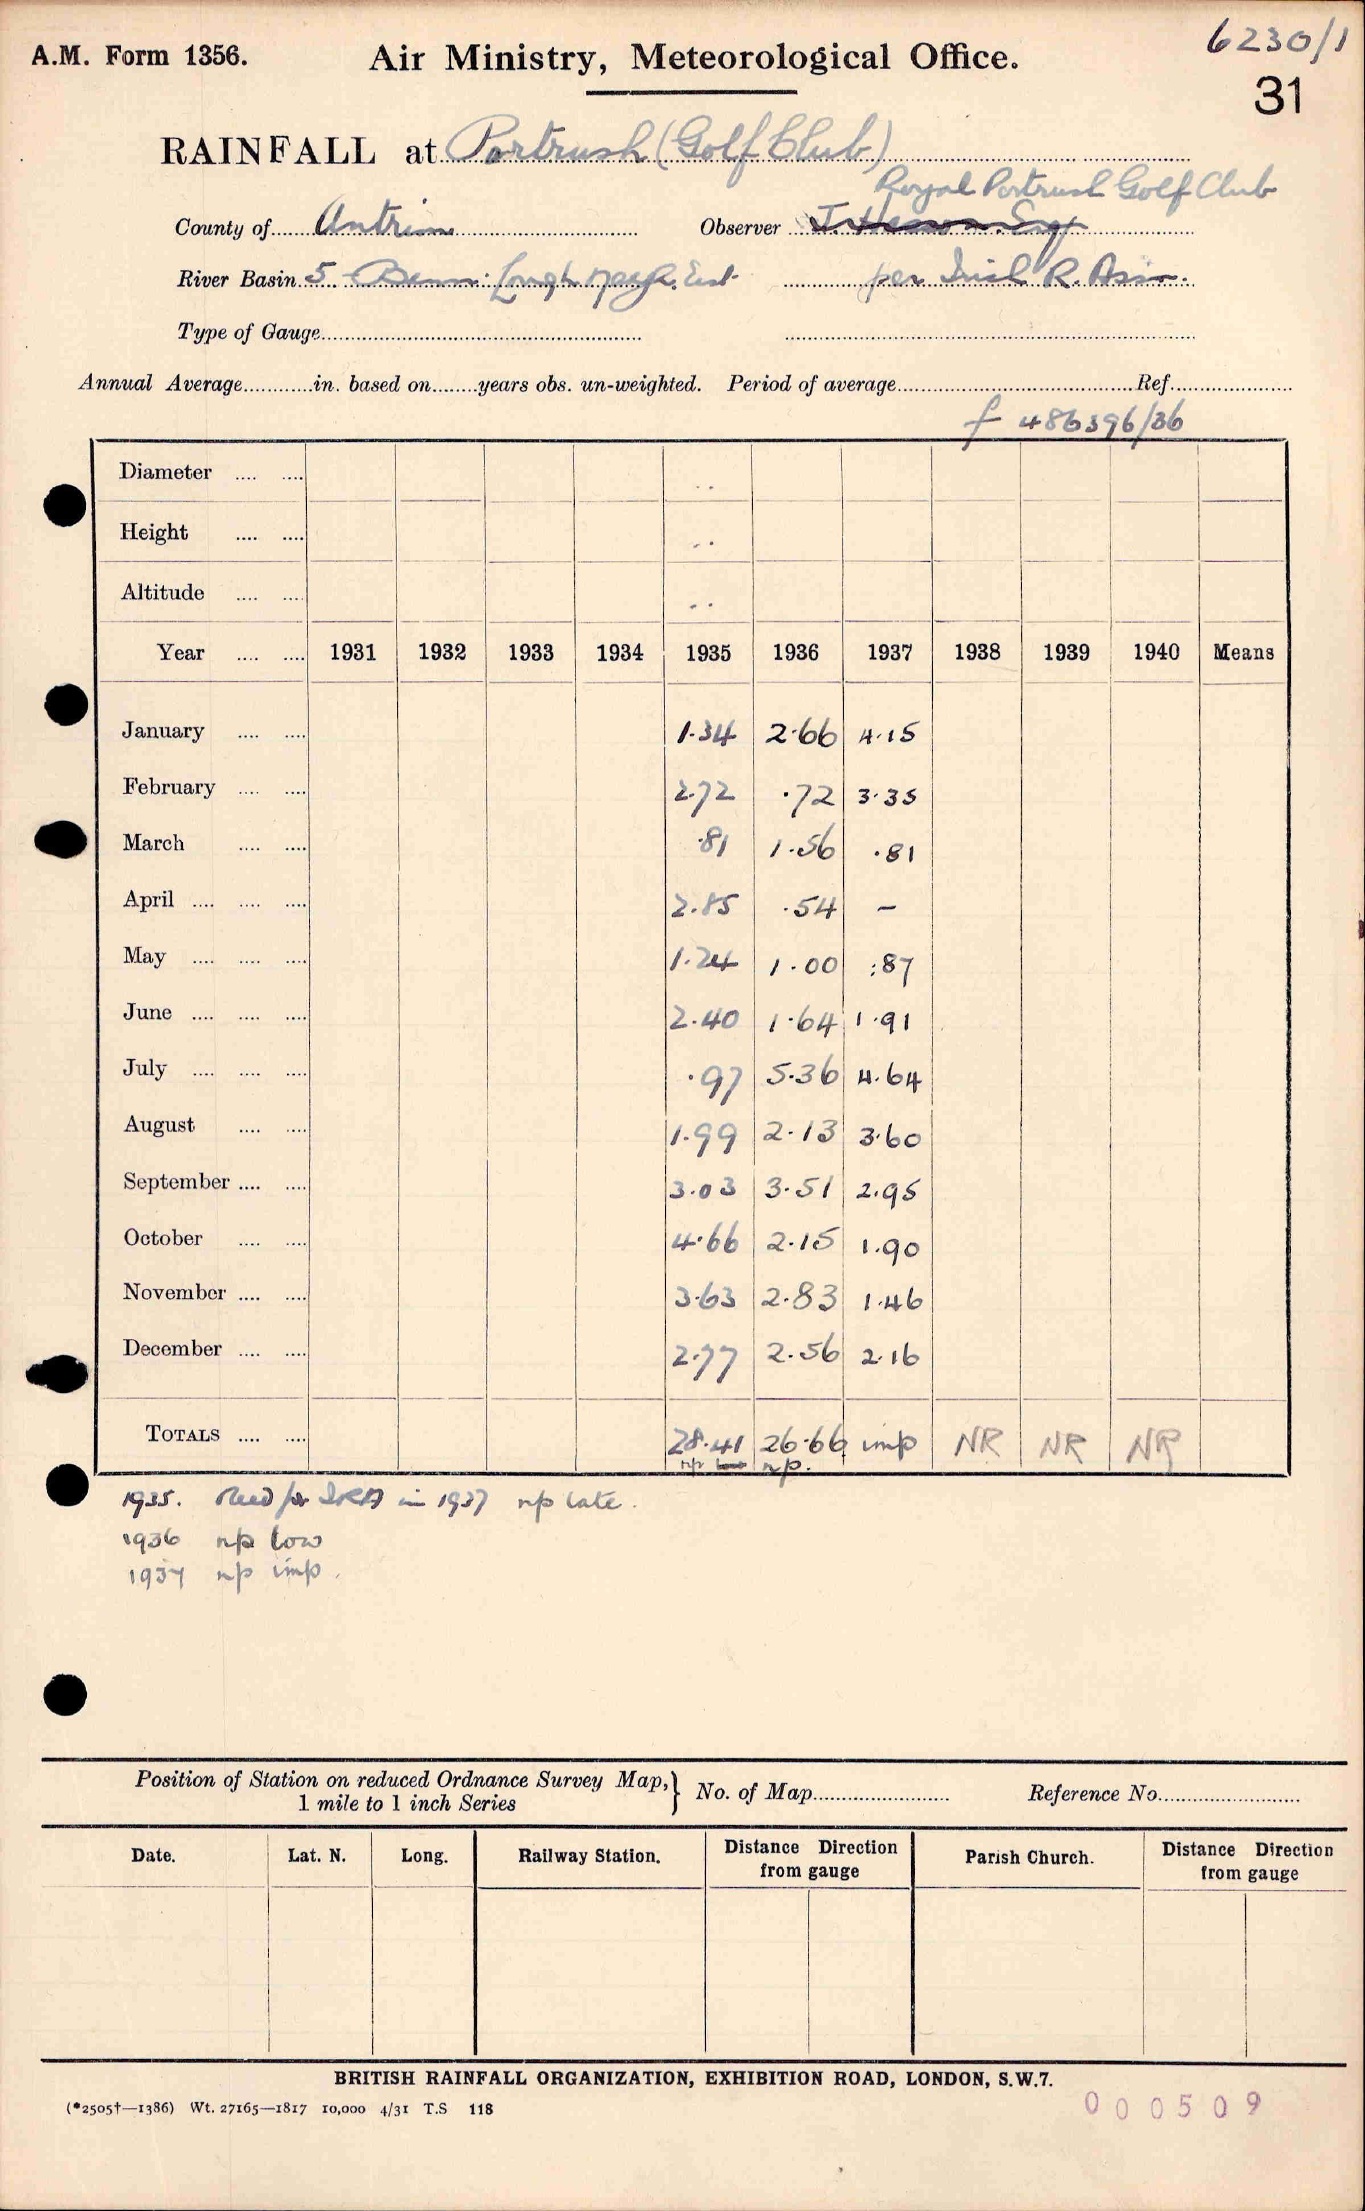 6230/1
A.M. Form 1356. Air Ministry, Meteorological Office.
31
RAINFALL at Portrush (Golf Club)
Royal Portrush Golf Club
County of Antrim Observer
River Basin 5 Lough Neagh. East per Irish R. Assn.
Type of Gauge
Annual Average in. based on years obs. un-weighted. Period of average Ref.
f 486396/36
Diameter
Height
Altitude
Year 1931 1932 1933 1934 1935 1936 1937 1938 1939 1940 Means
January 1.34 2.66 4.15
February 2.72 .72 3.35
March .81 1.56 .81
April 2.85 .54 –
May 1.24 1.00 .87
June 2.40 1.64 1.91
July .97 5.36 4.64
August 1.99 2.13 3.60
September 3.03 3.51 2.95
October 4.66 2.15 1.90
November 3.63 2.83 1.46
December 2.77 2.56 2.16
TOTALS 28.41 26.66 imp NR NR NR
np np.
1935. Recd per IRA in 1937 np late.
1936 np low
1937 np imp.
Position of Station on reduced Ordnance Survey Map, } No. of Map Reference No.
1 mile to 1 inch Series
Date. Lat. N. Long. Railway Station. Distance Direction from gauge Parish Church. Distance Direction from gauge
BRITISH RAINFALL ORGANIZATION, EXHIBITION ROAD, LONDON, S.W.7.
(*2505†—1386) Wt. 27165—1817 10,000 4/31 T.S 118
000509